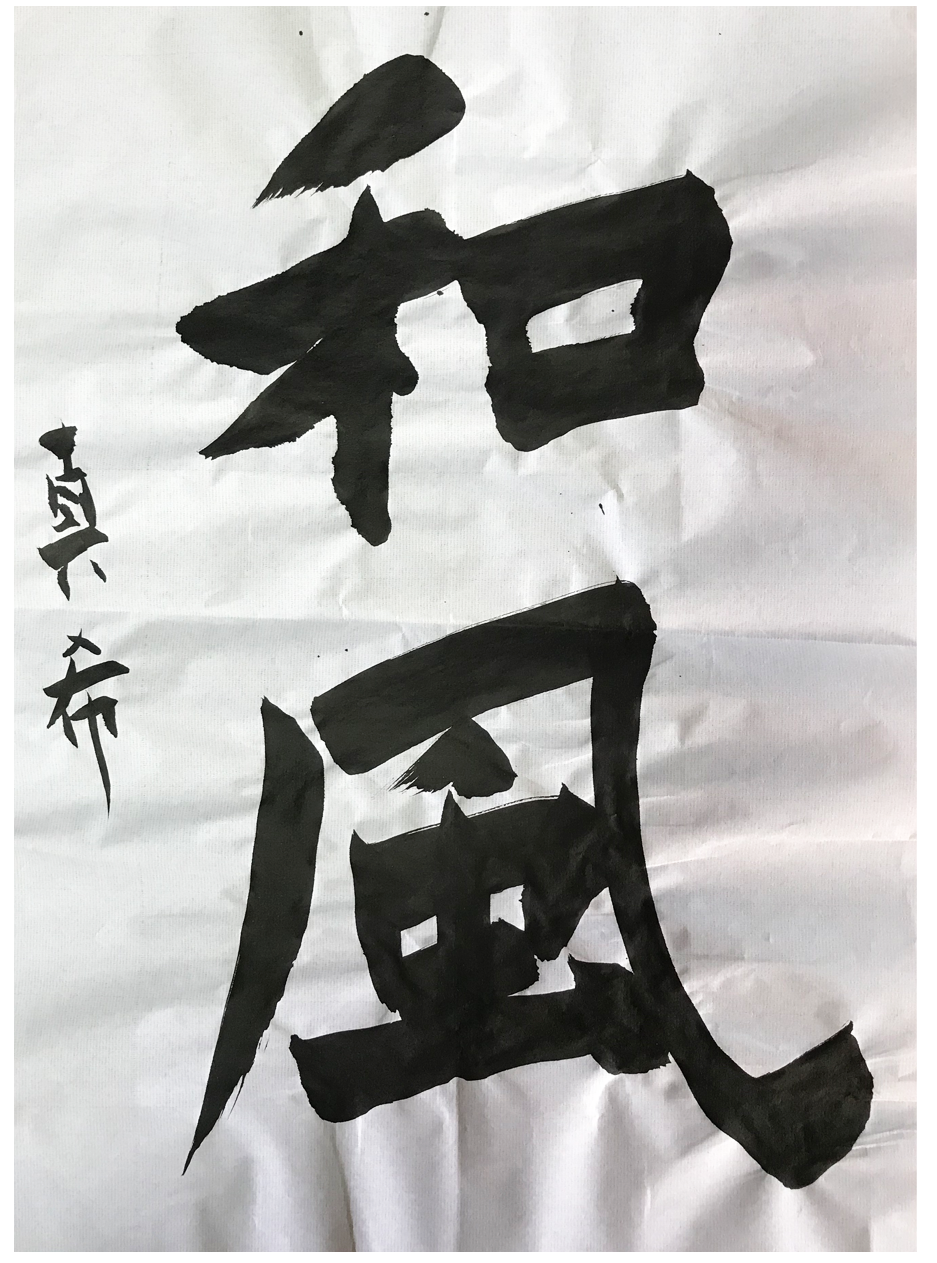 和風
真希